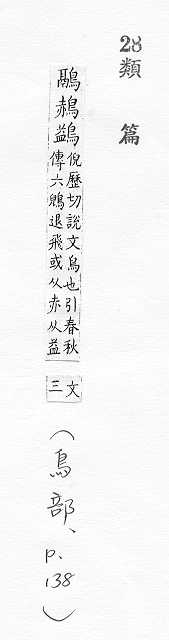 28 類 篇
鷊 鷁
倪歷切說文鳥也引春秋
傳六鶂退飛或从赤从益
文
三
(鳥部、p.138)